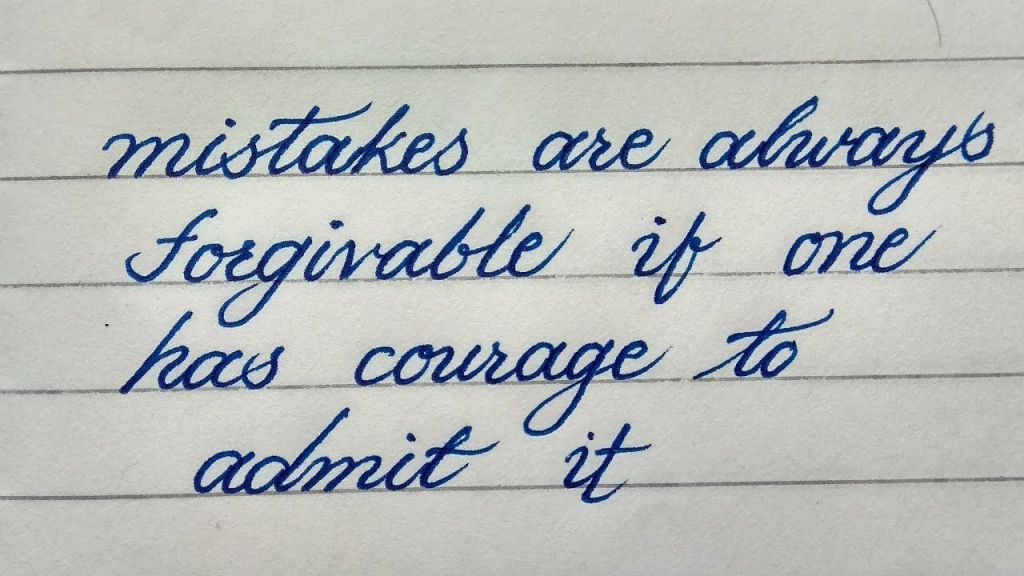 mistakes are always
forgivable if one
has courage to
admit it